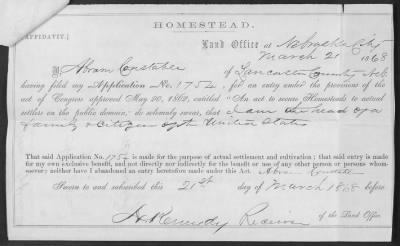 HOMESTEAD.
[AFFIDAVIT.]
Land Office at Nebraska City
March 21 1868
I, Abram of Lancaster County Neb
having filed my Application No. 1754, for an entry under the provisions of the
act of Congress approved May 20, 1862, entitled "An act to secure Homesteads to actual
settlers on the public domain," do solemnly swear, that I am the head of a
family & citizen of the United States
That said Application No. 1754 is made for the purpose of actual settlement and cultivation; that said entry is made
for my own exclusive benefit, and not directly nor indirectly for the benefit or use of any other person or persons whom-
soever; neither have I abandoned an entry heretofore made under this Act. Abram
Sworn to and subscribed this 21st day of March 1868 before
Kennedy Receiver
of the Land Office.